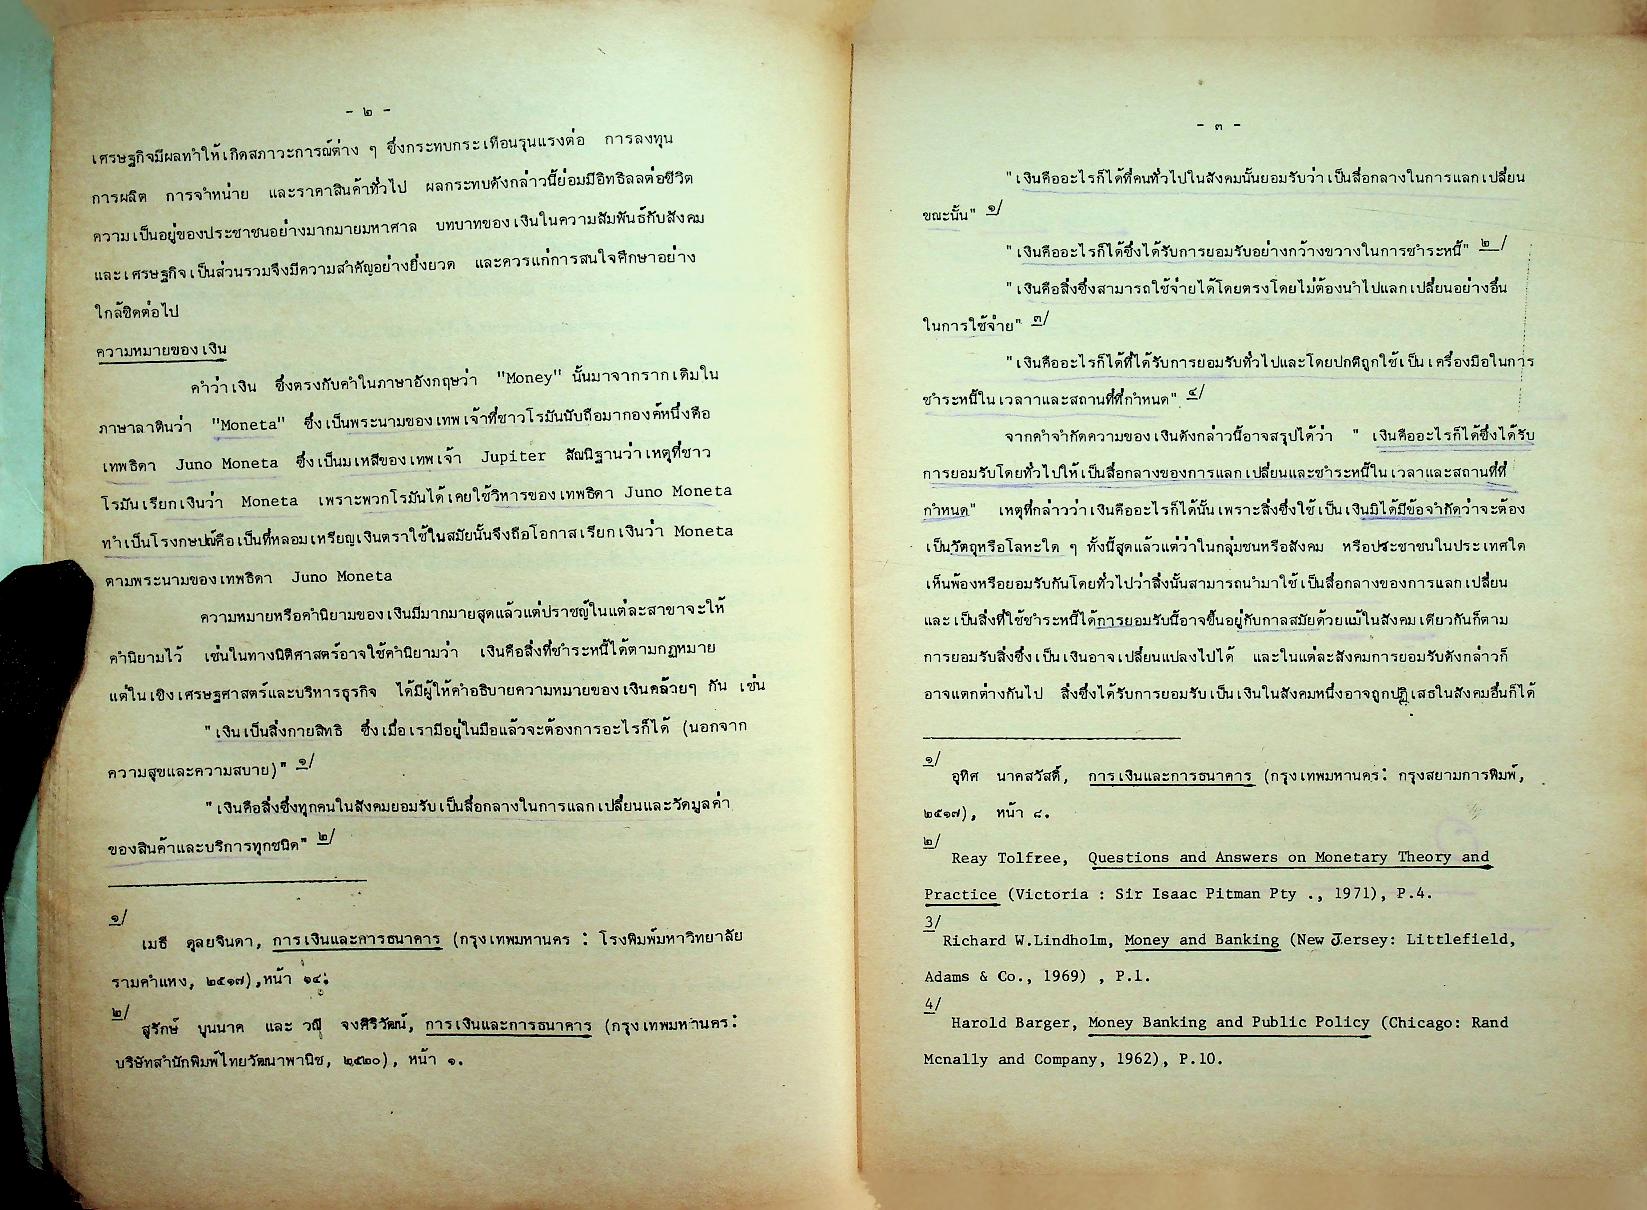 - ๒ -
เศรษฐกิจมีผลทำให้เกิดสภาวะการณ์ต่าง ๆ ซึ่งกระทบกระเทือนรุนแรงต่อ การลงทุน
การผลิต การจำหน่าย และราคาสินค้าทั่วไป ผลกระทบดังกล่าวนี้ย่อมมีอิทธิลลต่อชีวิต
ความเป็นอยู่ของประชาชนอย่างมากมายมหาศาล บทบาทของเงินในความสัมพันธ์กับสังคม
และเศรษฐกิจเป็นส่วนรวมจึงมีความสำคัญอย่างยิ่งยวด และควรแก่การสนใจศึกษาอย่าง
ใกล้ชิดต่อไป
ความหมายของเงิน
คำว่าเงิน ซึ่งตรงกับคำในภาษาอังกฤษว่า "Money" นั้นมาจากรากเดิมใน
ภาษาลาตินว่า "Moneta" ซึ่งเป็นพระนามของเทพเจ้าที่ชาวโรมันนับถือมากองค์หนึ่งคือ
เทพธิดา Juno Moneta ซึ่งเป็นมเหสีของเทพเจ้า Jupiter สันนิฐานว่าเหตุที่ชาว
โรมันเรียกเงินว่า Moneta เพราะพวกโรมันได้เคยใช้วิหารของเทพธิดา Juno Moneta
ทำเป็นโรงกษปณ์คือเป็นที่หลอมเหรียญเงินตราใช้ในสมัยนั้นจึงถือโอกาสเรียกเงินว่า Moneta
ตามพระนามของเทพธิดา Juno Moneta
ความหมายหรือคำนิยามของเงินมีมากมายสุดแล้วแต่ปราชญ์ในแต่ละสาขาจะให้
คำนิยามไว้ เช่นในทางนิติศาสตร์อาจใช้คำนิยามว่า เงินคือสิ่งที่ชำระหนี้ได้ตามกฎหมาย
แต่ในเชิงเศรษฐศาสตร์และบริหารธุรกิจ ได้มีผู้ให้คำอธิบายความหมายของเงินคล้ายๆ กัน เช่น
"เงินเป็นสิ่งกายสิทธิ ซึ่งเมื่อเรามีอยู่ในมือแล้วจะต้องการอะไรก็ได้ (นอกจาก
ความสุขและความสบาย)" ๑/
"เงินคือสิ่งซึ่งทุกคนในสังคมยอมรับเป็นสื่อกลางในการแลกเปลี่ยนและวัดมูลค่า
ของสินค้าและบริการทุกชนิด" ๒/
๑/
เมธี ดุลยจินดา, การเงินและการธนาคาร (กรุงเทพมหานคร : โรงพิมพ์มหาวิทยาลัย
รามคำแหง, ๒๕๑๗),หน้า ๑๔;
๒/
สุรักษ์ บุนนาค และ วณี จงศิริวัฒน์, การเงินและการธนาคาร (กรุงเทพมหานคร:
บริษัทสำนักพิมพ์ไทยวัฒนาพานิช, ๒๕๒๐), หน้า ๑.
- ๓ -
"เงินคืออะไรก็ได้ที่คนทั่วไปในสังคมนั้นยอมรับว่าเป็นสื่อกลางในการแลกเปลี่ยน
ขณะนั้น" ๑/
"เงินคืออะไรก็ได้ซึ่งได้รับการยอมรับอย่างกว้างขวางในการชำระหนี้" ๒/
"เงินคือสิ่งซึ่งสามารถใช้จ่ายได้โดยตรงโดยไม่ต้องนำไปแลกเปลี่ยนอย่างอื่น
ในการใช้จ่าย" ๓/
"เงินคืออะไรก็ได้ที่ได้รับการยอมรับทั่วไปและโดยปกติถูกใช้เป็นเครื่องมือในการ
ชำระหนี้ในเวลาาและสถานที่ที่กำหนด" ๔/
จากคำจำกัดความของเงินดังกล่าวนี้อาจสรุปได้ว่า " เงินคืออะไรก็ได้ซึ่งได้รับ
การยอมรับโดยทั่วไปให้เป็นสื่อกลางของการแลกเปลี่ยนและชำระหนี้ในเวลาและสถานที่ที่
กำหนด" เหตุที่กล่าวว่าเงินคืออะไรก็ได้นั้นเพราะสิ่งซึ่งใช้เป็นเงินมิได้มีข้อจำกัดว่าจะต้อง
เป็นวัตถุหรือโลหะใด ๆ ทั้งนี้สุดแล้วแต่ว่าในกลุ่มชนหรือสังคม หรือประชาชนในประเทศใด
เห็นพ้องหรือยอมรับกันโดยทั่วไปว่าสิ่งนั้นสามารถนำมาใช้เป็นสื่อกลางของการแลกเปลี่ยน
และเป็นสิ่งที่ใช้ชำระหนี้ได้การยอมรับนี้อาจขึ้นอยู่กับกาลสมัยด้วยแม้ในสังคมเดียวกันก็ตาม
การยอมรับสิ่งซึ่งเป็นเงินอาจเปลี่ยนแปลงไปได้ และในแต่ละสังคมการยอมรับดังกล่าวก็
อาจแตกต่างกันไป สิ่งซึ่งได้รับการยอมรับเป็นเงินในสังคมหนึ่งอาจถูกปฏิเสธในสังคมอื่นก็ได้
๑/
อุทิศ นาคสวัสดิ์, การเงินและการธนาคาร (กรุงเทพมหานคร: กรุงสยามการพิมพ์,
๒๕๑๗), หน้า ๘.
๒/
Reay Tolfree, Questions and Answers on Monetary Theory and
Practice (Victoria : Sir Isaac Pitman Pty ., 1971), P.4.
3/
Richard W.Lindholm, Money and Banking (New Jersey: Littlefield,
Adams & Co., 1969) , P.1.
4/
Harold Barger, Money Banking and Public Policy (Chicago: Rand
Mcnally and Company, 1962), P.10.